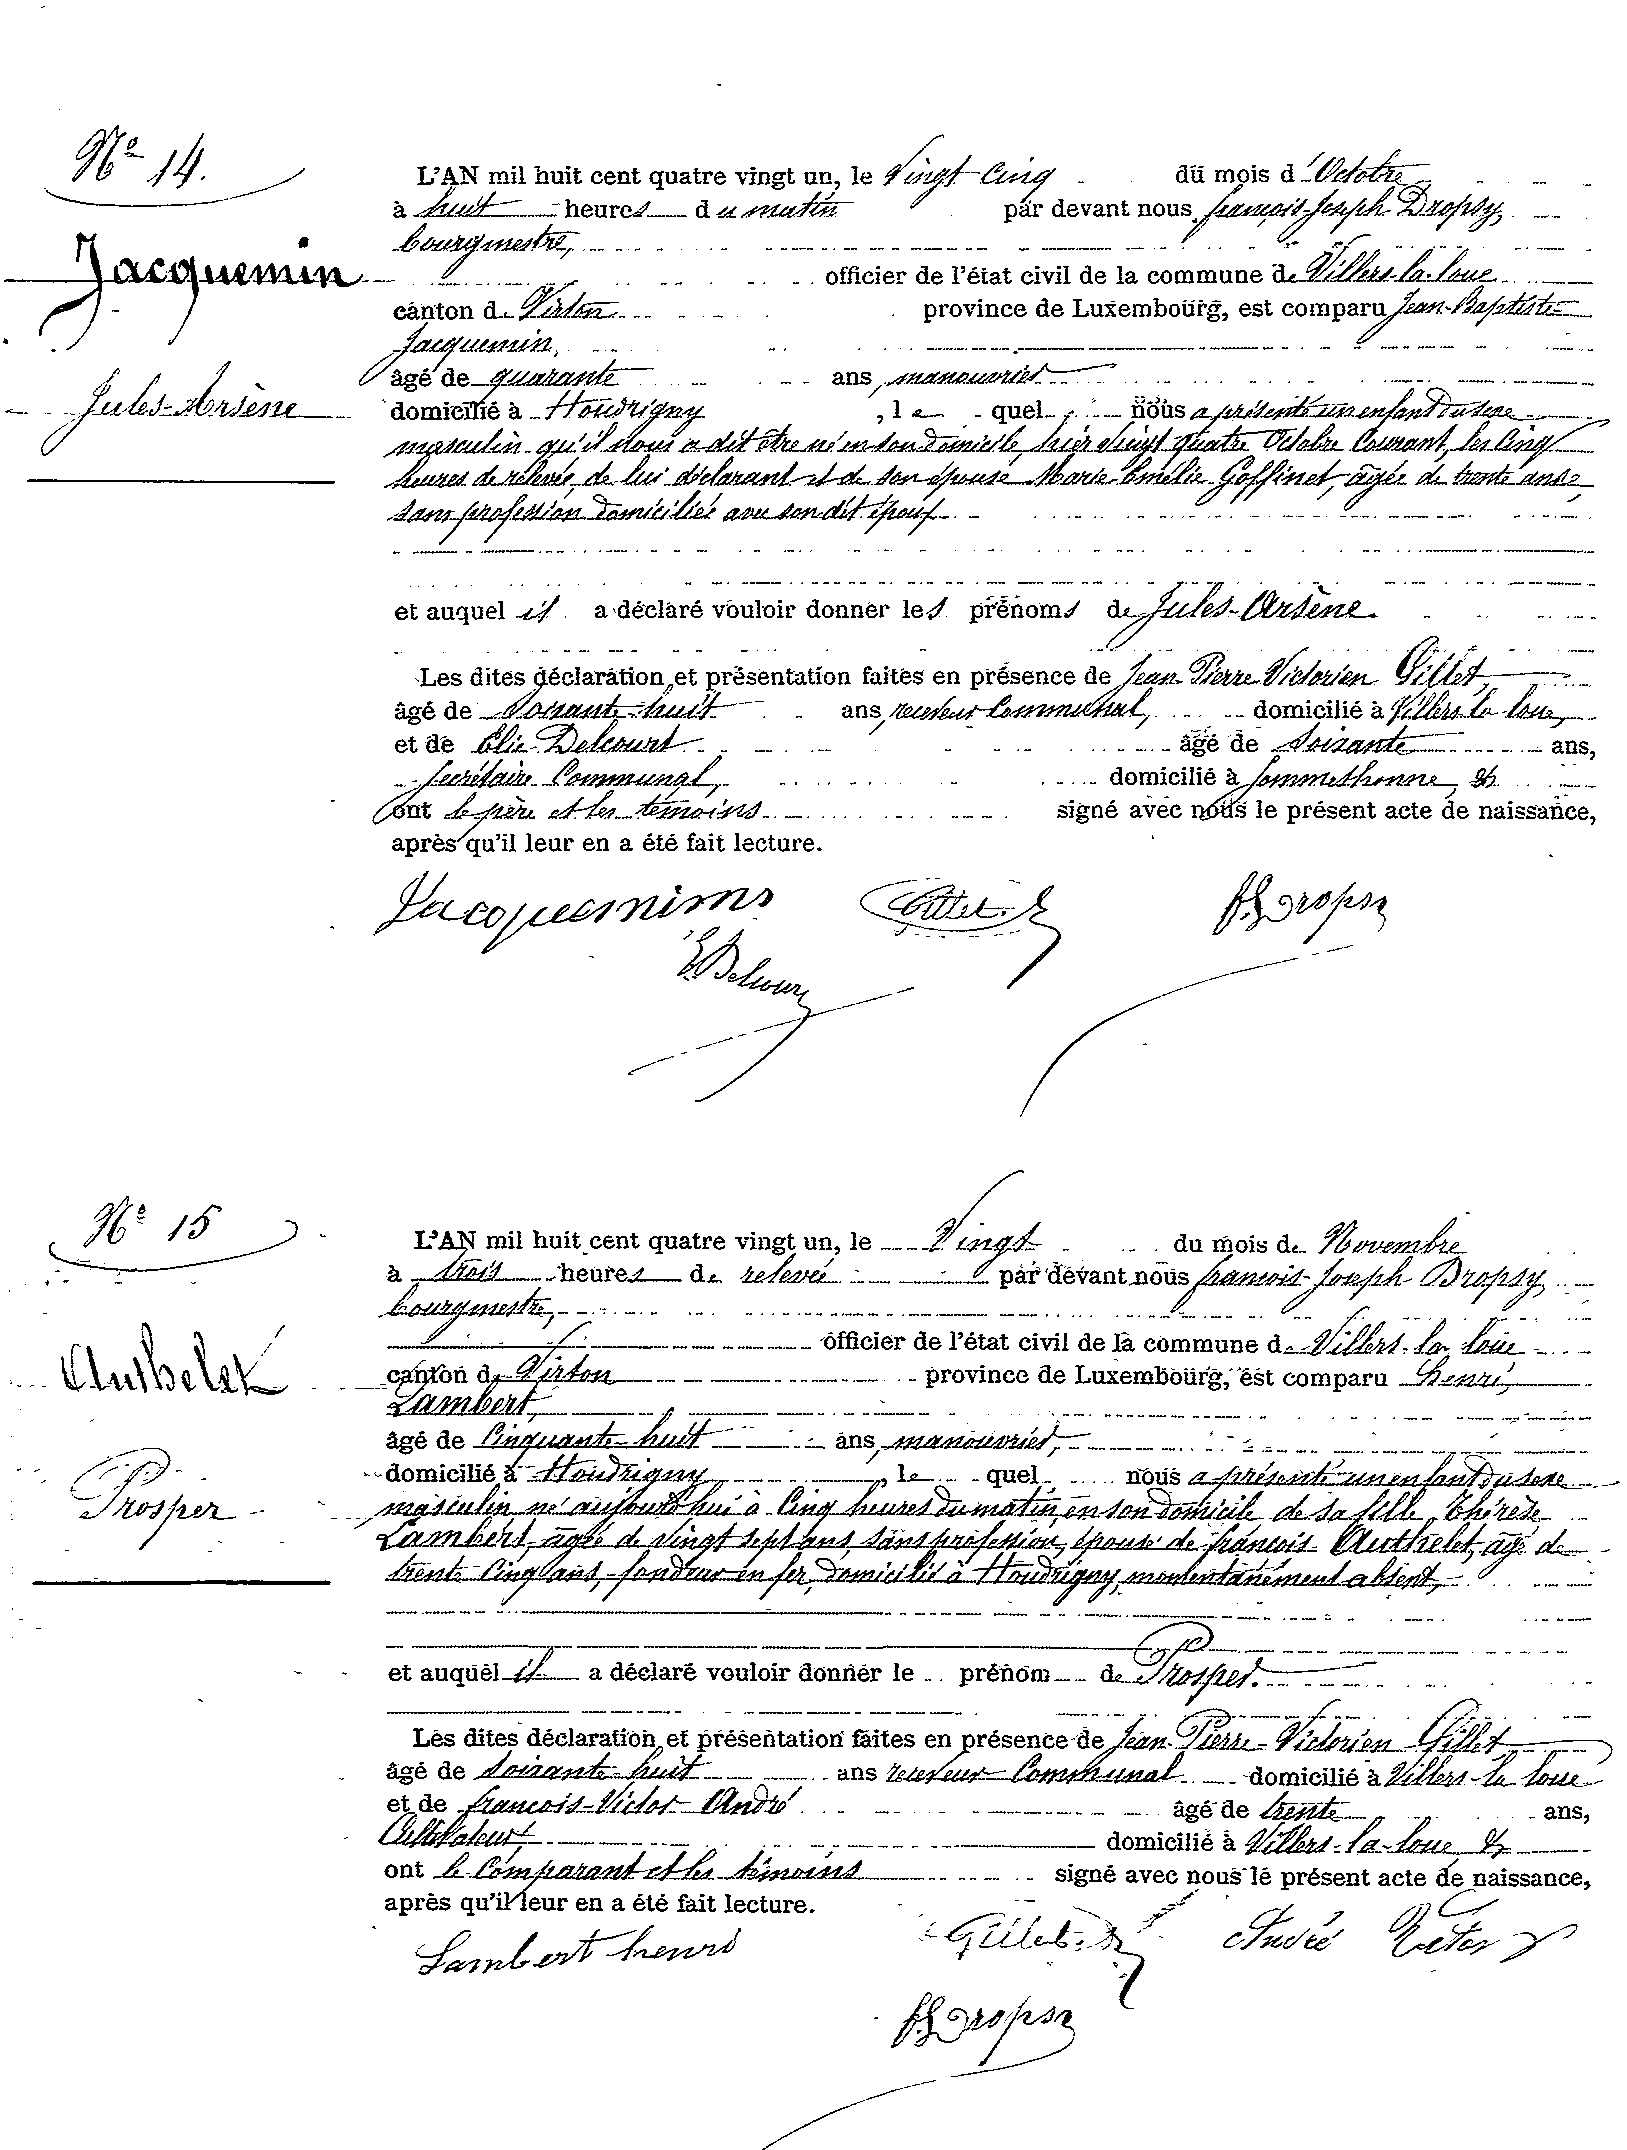 Nº 14.
Jacquemin
Jules-Arsène
L'AN mil huit cent quatre vingt un, le Vingt Cinq du mois d'Octobre
à huit heures du matin par devant nous françois-Joseph Dropsy
bourgmestre,
officier de l'état civil de la commune de Villers-la-loue
canton de Virton province de Luxembourg, est comparu Jean-Baptiste
Jacquemin,
âgé de quarante ans, manouvrier
domicilié à Houdrigny, le quel nous a présenté un enfant du sexe
masculin qu'il nous a dit être né en son domicile, hier vingt quatre Octobre Courant, les Cinq
heures de relevée, de lui déclarant et de son épouse Marie-Emélie Goffinet, âgée de trente ans,
sans profession domiciliée avec son dit époux
et auquel il a déclaré vouloir donner les prénoms de Jules-Arsène.
Les dites déclaration et présentation faites en présence de Jean-Pierre-Victorien Gillet
âgé de Soixante-huit ans, receveur Communal, domicilié à Villers-la loue,
et de Elie Delcourt âgé de Soixante ans,
Secrétaire Communal, domicilié à Sommethonne, &
ont le père et les témoins signé avec nous le présent acte de naissance,
après qu'il leur en a été fait lecture.
Jacquemin Gillet FJDropsy
EDelcour
Nº 15
Authelet
Prosper
L'AN mil huit cent quatre vingt un, le Vingt du mois de Novembre
à trois heures de relevée par devant nous françois-Joseph Dropsy
bourgmestre,
officier de l'état civil de la commune de Villers-la loue
canton de Virton province de Luxembourg, est comparu henri,
Lambert,
âgé de Cinquante-huit ans, manouvrier,
domicilié à Houdrigny, le quel nous a présenté un enfant du sexe
masculin né aujourd'hui à Cinq heures du matin, en son domicile de sa fille Thérèse
Lambert, agée de vingt sept ans, sans profession, épouse de françois Authelet, agé de
trente Cinq ans, fondeur en fer, domicilié à Houdrigny, momentanément absent,
et auquel il a déclaré vouloir donner le prénom de Prosper.
Les dites déclaration et présentation faites en présence de Jean-Pierre-Victorien Gillet
âgé de Soixante huit ans receveur Communal domicilié à Villers-la loue
et de francois-Victor André âgé de trente ans,
Cultivateur, domicilié à Villers-la-loue, &
ont le Comparant et les témoins signé avec nous le présent acte de naissance,
après qu'il leur en a été fait lecture.
Lambert henri Gillet André Victor
FJDropsy